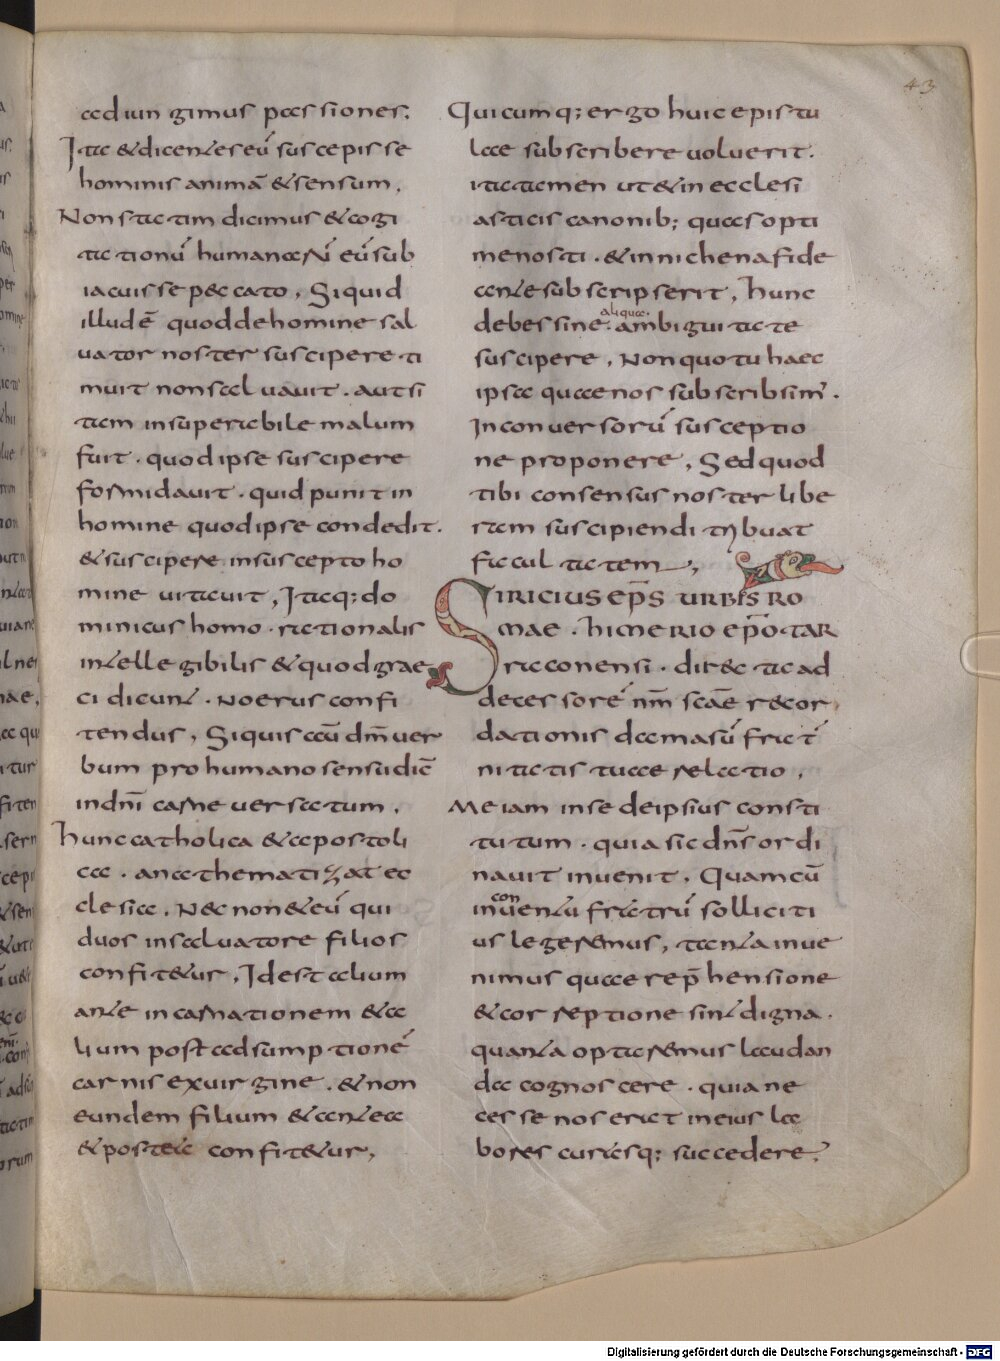 43
adiungimus passiones.
Ita & dicentes eū suscepisse
hominis animā & sensum.
Non statim dicimus & cogi
tationū humanarū eū sub
iacuisse peccato, Si quid
illud ē quod de homine sal
uator noster suscipere ti
muit non saluauit. aut si
tam insuperabile malum
fuit. quod ipse suscipere
formidauit. quid punit in
homine quod ipse condedit.
& suscipere insuscepto ho
mine uitauit, Itaq; do
minicus homo. rationalis
intellegibilis & quod grae
ci dicunt. Noerus confi
tendus, Si quis aū dm̄ uer
bum pro humano sensu dic̄
in dn̄i carne uersatum.
hunc catholica & apostoli
ca. anathematizat ec
clesia. Nec non & eū qui
duos in saluatore filios
confitetur, Id est alium
ante incarnationem & a
lium post adsumptionē
carnis ex uirgine. & non
eundem filium & antea
& postea confitetur,
Quicumq; ergo huic epistu
lae subscribere uoluerit.
ita tamen ut & in ecclesi
asticis canonib; quas opti
me nosti. & in nichena fide
ante subscripserit, hunc
aliqua.
debes sine ambiguitate
suscipere, Non quo tu haec
ipsa quae nos subscribsim̄.
In conuersorū susceptio
ne proponere, Sed quod
tibi consensus noster libe
ram suscipiendi tribuat
facultatem,;
SIRICIUS EP̄S URBIS RO
mae. himerio ep̄o tar
raconensi. directa ad
decessorē nm̄ scāe recor
dationis damasū frat̄
nitatis tuae relatio,
Me iam in sede ipsius consti
tutum. quia sic dn̄s ordi
nauit inuenit. Quam cū
con
in uentu fratrū solliciti
us legeremus, tanta inue
nimus quae rep̄hensione
& correptione sint digna.
quanta optaremus laudan
da cognoscere. quia ne
cesse nos erat in eius la
bores curasq; succedere.
Digitalisierung gefördert durch die Deutsche Forschungsgemeinschaft - DFG